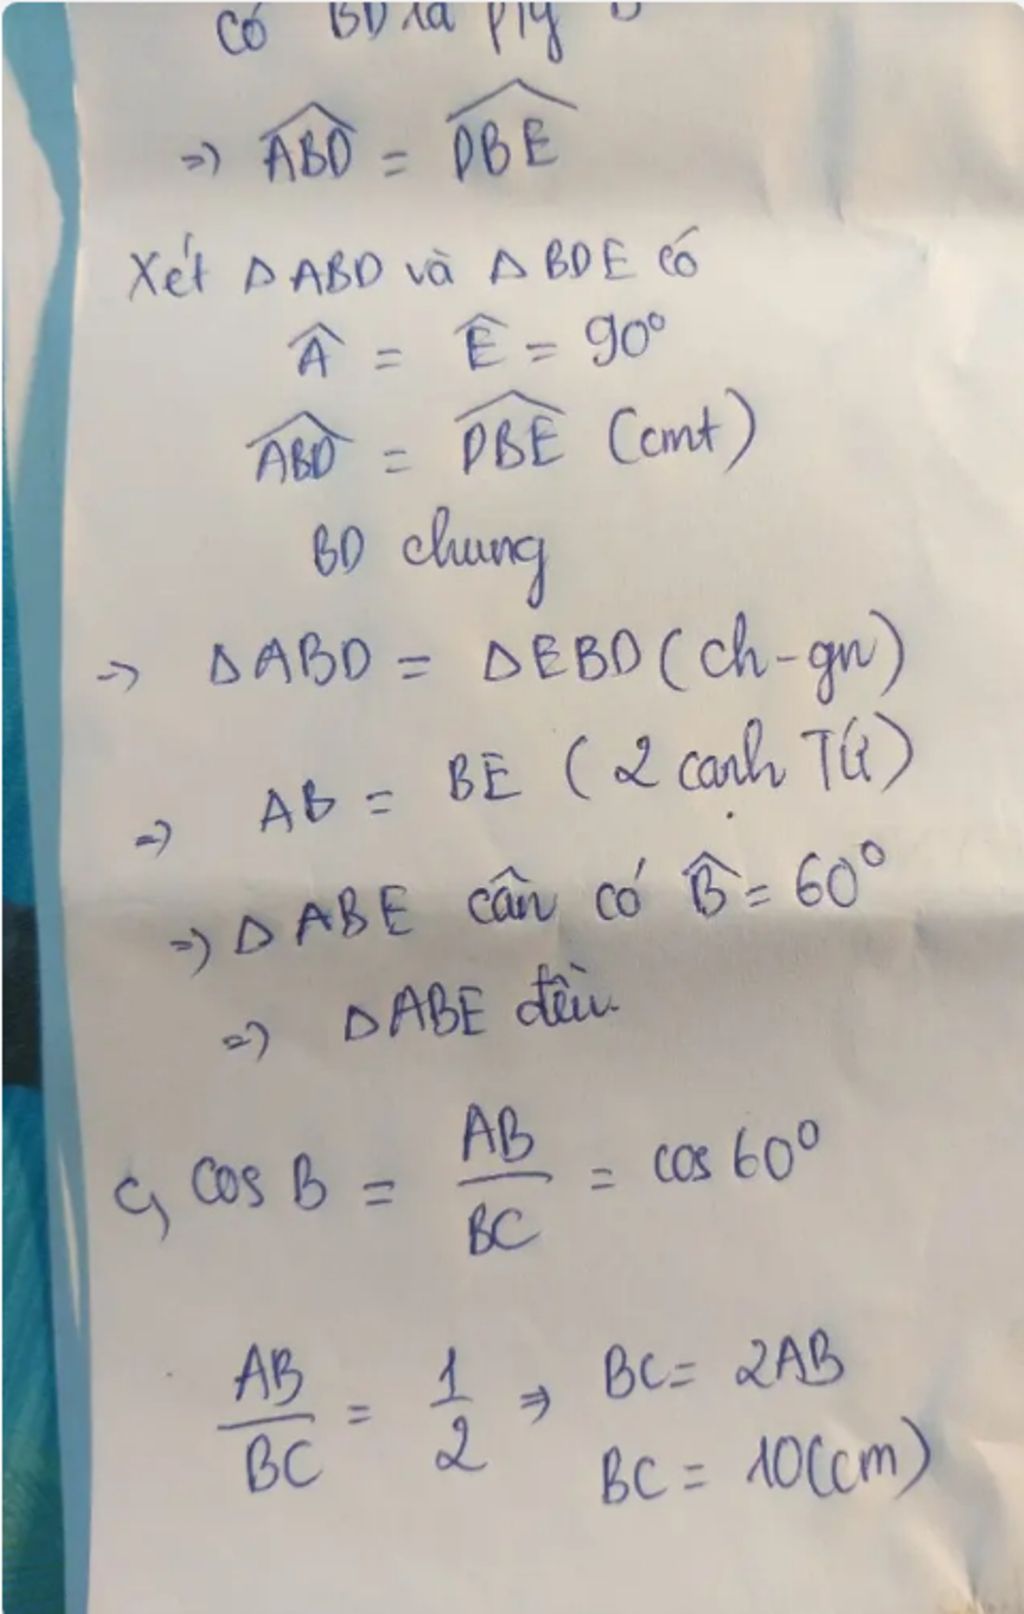 có BD là p/g
=) ABD̂ = DBÊ
Xét Δ ABD và Δ BDE có
Â = Ê = 90°
ABD̂ = DBÊ (cmt)
BD chung
=> ΔABD = ΔEBD (ch-gn)
=) AB = BE (2 cạnh TƯ)
=) Δ ABE cân có B̂ = 60°
=) ΔABE đều.
c, cos B = AB/BC = cos 60°
AB/BC = 1/2 => BC = 2AB
BC = 10(cm)